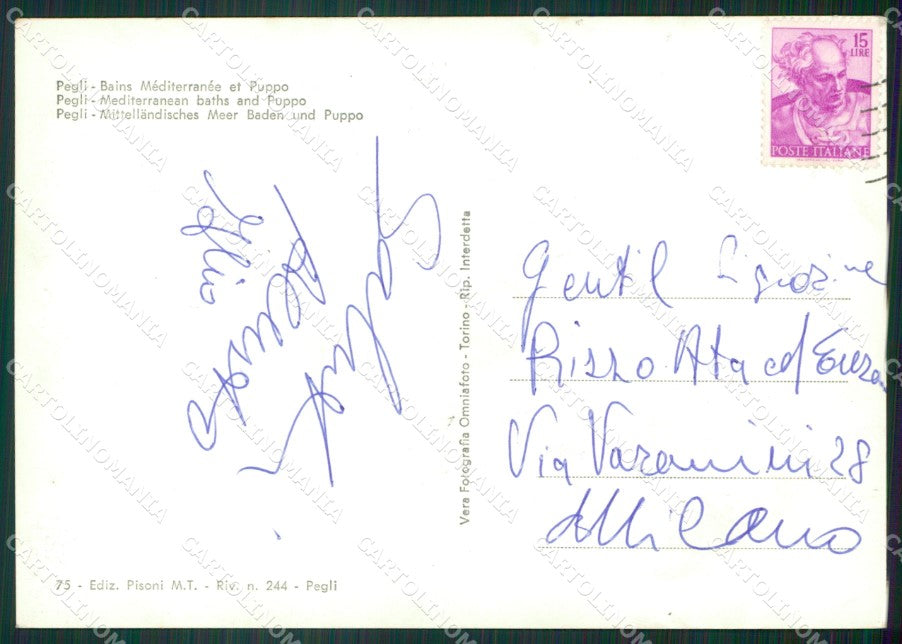 Pegli - Bains Méditerranée et Puppo
Pegli - Mediterranean baths and Puppo
Pegli - Mittelländisches Meer Baden und Puppo
15
LIRE
POSTE ITALIANE
Saluti
Vera Fotografia Omniafoto - Torino - Rip. Interdetta
Gentil
Rizzo Ata ed Enzo
Via Varanini 28
Milano
75 - Ediz. Pisoni M.T. - Riv. n. 244 - Pegli
CARTOLINOMANIA